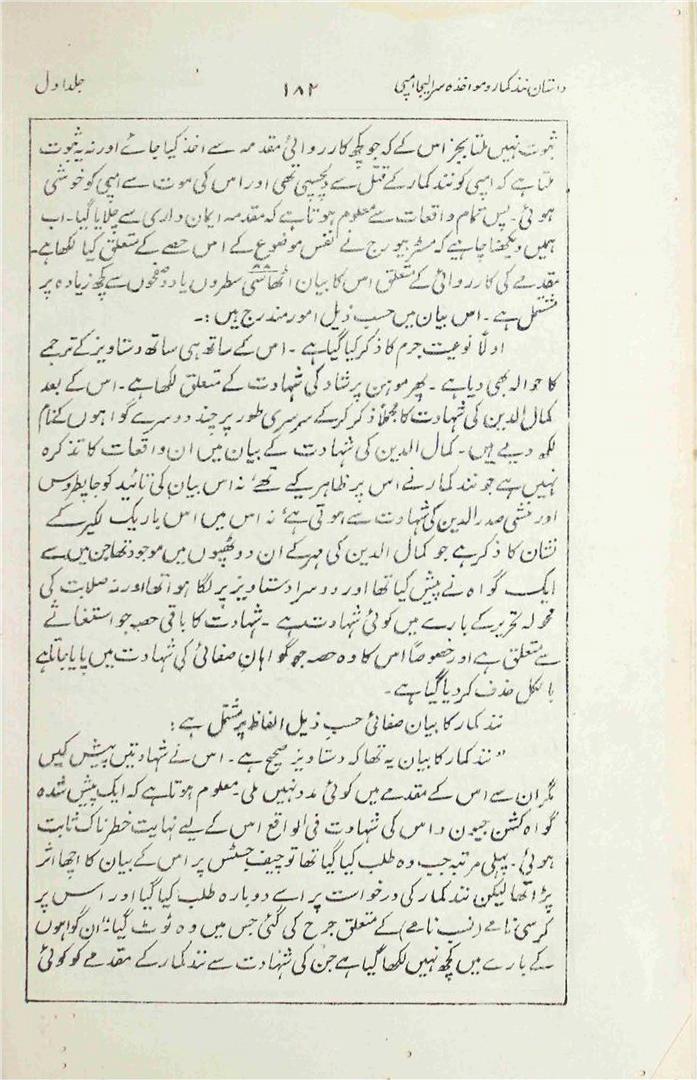 داستان نندکمار و مواخذہ سر الیجا امپی ۱۸۲ جلد اول
ثبوت نہیں ملتا بجز اس کے کہ جو کچھ کارروائیٔ مقدمہ سے اخذ کیا جائے اور نہ یہ ثبوت
ملتا ہے کہ امپی کو نندکمار کے قتل سے دلچسپی تھی اور اس کی موت سے امپی کو خوشی
ہوئی۔ پس تمام واقعات سے معلوم ہوتا ہے کہ مقدمہ ایمان داری سے چلایا گیا۔ اب
ہمیں دیکھنا چاہیے کہ مسٹر بیورج نے نفس موضوع کے اس حصے کے متعلق کیا لکھا ہے۔
مقدمے کی کارروائی کے متعلق اس کا بیان اٹھاسی ۸۸ سطروں یا دو صفحوں سے کچھ زیادہ پر
مشتمل ہے۔ اس بیان میں حسب ذیل امور مندرج ہیں :۔
اولاً نوعیت جرم کا ذکر کیا گیا ہے۔ اس کے ساتھ ہی ساتھ دستاویز کے ترجمے
کا حوالہ بھی دیا ہے۔ پھر موہن پرشاد کی شہادت کے متعلق لکھا ہے۔ اس کے بعد
کمال الدین کی شہادت کا مجملاً ذکر کرکے سرسری طور پر چند دوسرے گواہوں کے نام
لکھ دیے ہیں۔ کمال الدین کی شہادت کے بیان میں ان واقعات کا تذکرہ
نہیں ہے جو نندکمار نے اس پر ظاہر کیے تھے' نہ اس بیان کی تائید کو جاپطروس
اور منشی صدر الدین کی شہادت سے ہوتی ہے' نہ اس میں اس باریک لکیر کے
نشان کا ذکر ہے جو کمال الدین کی مہر کے ان دو ٹھپوں میں موجود تھا جن میں سے
ایک گواہ نے پیش کیا تھا اور دوسرا دستاویز پر لگا ہوا تھا اور نہ صلابت کی
محولہ تحریر کے بارے میں کوئی شہادت ہے۔ شہادت کا باقی حصہ جو استغاثے
سے متعلق ہے اور خصوصاً اس کا وہ حصہ جو گواہانِ صفائی کی شہادت میں پایا جاتا ہے
بالکل حذف کر دیا گیا ہے۔
نندکمار کا بیان صفائی حسب ذیل الفاظ پر مشتمل ہے :
"نندکمار کا بیان یہ تھا کہ دستاویز صحیح ہے۔ اس نے شہادتیں پیش کیں
مگر ان سے اس کے مقدمے میں کوئی مدد نہیں ملی۔ معلوم ہوتا ہے کہ ایک پیش شدہ
گواہ کشن جیون داس کی شہادت فی الواقع اس کے لیے نہایت خطرناک ثابت
ہوئی۔ پہلی مرتبہ جب وہ طلب کیا گیا تھا تو چیف جسٹس پر اس کے بیان کا اچھا اثر
پڑا تھا لیکن نندکمار کی درخواست پر اسے دوبارہ طلب کیا گیا اور اس پر
کرسی نامے (نسب نامے) کے متعلق جرح کی گئی جس میں وہ ٹوٹ گیا۔" ان گواہوں
کے بارے میں کچھ نہیں لکھا گیا ہے جن کی شہادت سے نندکمار کے مقدمے کو کوئی